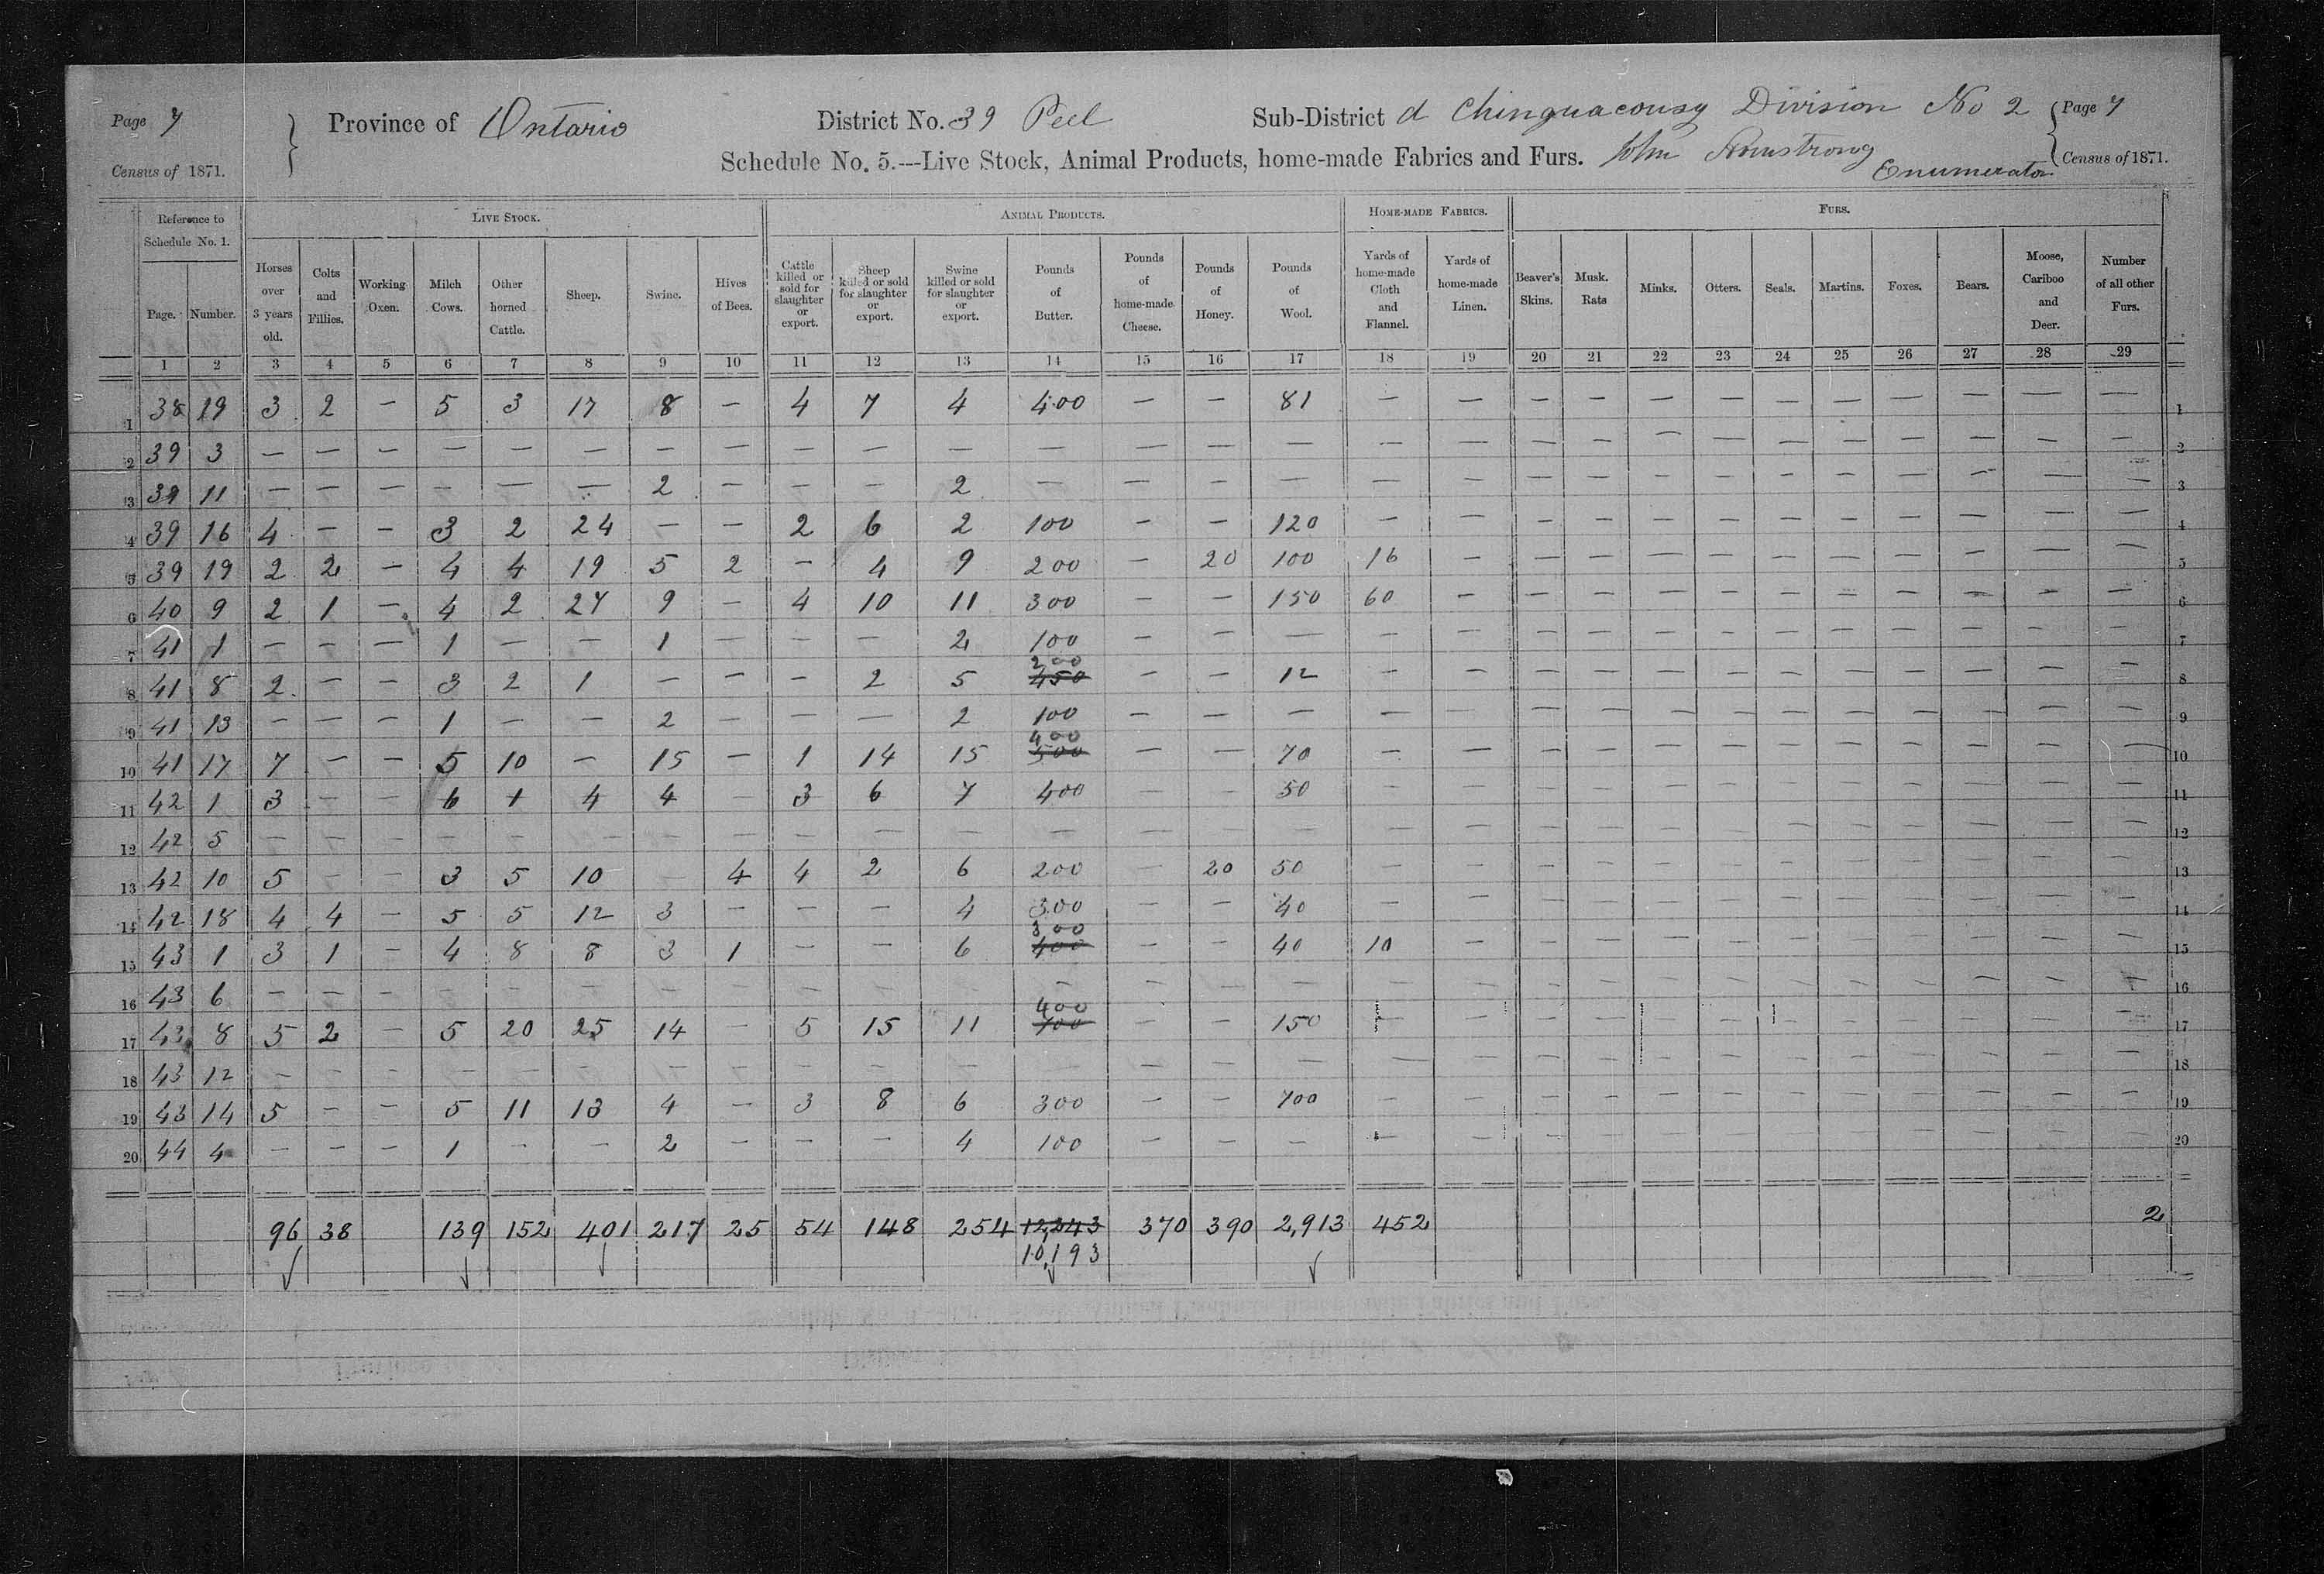 Page 7 Province of Ontario District No. 39 Peel Sub-District d Chinguacousy Division No 2 Page 7
Census of 1871. Schedule No. 5.---Live Stock, Animal Products, home-made Fabrics and Furs. John Armstrong Enumerator Census of 1871.
Reference to Schedule No. 1. LIVE STOCK. ANIMAL PRODUCTS. HOME-MADE FABRICS. FURS.
Page. Number. Horses over 3 years old. Colts and Fillies. Working Oxen. Milch Cows. Other horned Cattle. Sheep. Swine. Hives of Bees. Cattle killed or sold for slaughter or export. Sheep killed or sold for slaughter or export. Swine killed or sold for slaughter or export. Pounds of Butter. Pounds of home-made Cheese. Pounds of Honey. Pounds of Wool. Yards of home-made Cloth and Flannel. Yards of home-made Linen. Beaver's Skins. Musk. Rats Minks. Otters. Seals. Martins. Foxes. Bears. Moose, Cariboo and Deer. Number of all other Furs.
1 2 3 4 5 6 7 8 9 10 11 12 13 14 15 16 17 18 19 20 21 22 23 24 25 26 27 28 29
1 38 19 3 2 — 5 3 17 8 — 4 7 4 400 — — 81 — — — — — — — — — — — — 1
2 39 3 — — — — — — — — — — — — — — — — — — — — — — — — — — — 2
3 39 11 — — — — — — 2 — — — 2 — — — — — — — — — — — — — — — — 3
4 39 16 4 — — 3 2 24 — — 2 6 2 100 — — 120 — — — — — — — — — — — — 4
5 39 19 2 2 — 4 4 19 5 2 — 4 9 200 — 20 100 16 — — — — — — — — — — — 5
6 40 9 2 1 — 4 2 27 9 — 4 10 11 300 — — 150 60 — — — — — — — — — — — 6
7 41 1 — — — 1 — — 1 — — — 2 100 — — — — — — — — — — — — — — — 7
200
8 41 8 2 — — 3 2 1 — — — 2 5 450 — — 12 — — — — — — — — — — — — 8
9 41 13 — — — 1 — — 2 — — — 2 100 — — — — — — — — — — — — — — — 9
400
10 41 17 7 — — 5 10 — 15 — 1 14 15 500 — — 70 — — — — — — — — — — — — 10
11 42 1 3 — — 6 1 4 4 — 3 6 7 400 — — 50 — — — — — — — — — — — — 11
12 42 5 — — — — — — — — — — — — — — — — — — — — — — — — — — — 12
13 42 10 5 — — 3 5 10 — 4 4 2 6 200 — 20 50 — — — — — — — — — — — — 13
14 42 18 4 4 — 5 5 12 3 — — — 4 300 — — 40 — — — — — — — — — — — — 14
300
15 43 1 3 1 — 4 8 8 3 1 — — 6 400 — — 40 10 — — — — — — — — — — — 15
16 43 6 — — — — — — — — — — — — — — — — — — — — — — — — — — — 16
400
17 43 8 5 2 — 5 20 25 14 — 5 15 11 700 — — 150 — — — — — — — — — — — — 17
18 43 12 — — — — — — — — — — — — — — — — — — — — — — — — — — — 18
19 43 14 5 — — 5 11 13 4 — 3 8 6 300 — — 700 — — — — — — — — — — — — 19
20 44 4 — — — 1 — — 2 — — — 4 100 — — — — — — — — — — — — — — — 20
96 38 139 152 401 217 25 54 148 254 12,243 370 390 2,913 452 2
10,193